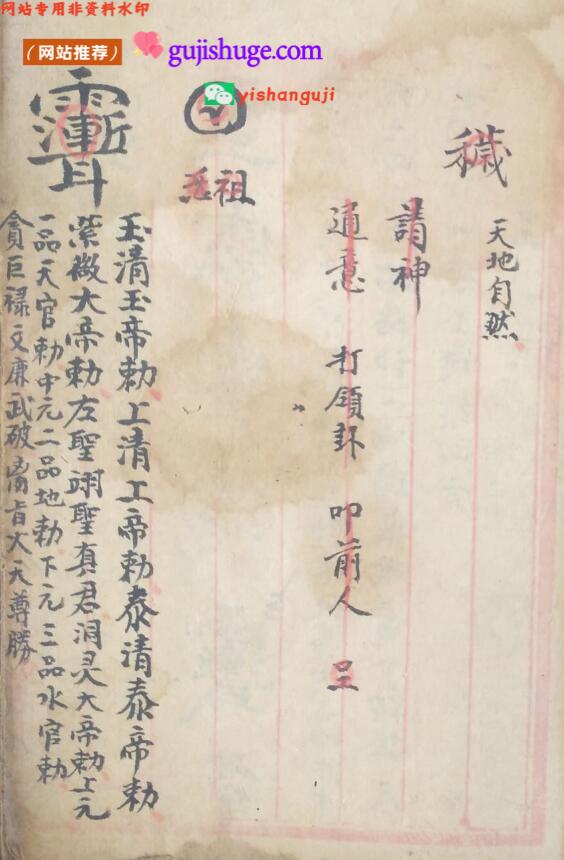 网站专用非资料水印
（网站推荐） gujishuge.com
yishanguji
穢
天地自然
請神
通意 打領卦 叩前人 呈
祖
玉清玉帝勅上清上帝勅泰清泰帝勅
紫微大帝勅左聖翊聖真君洞灵大帝勅上元
一品天官勅中元二品地勅下元三品水官勅
貪巨禄文廉武破 大天尊勝